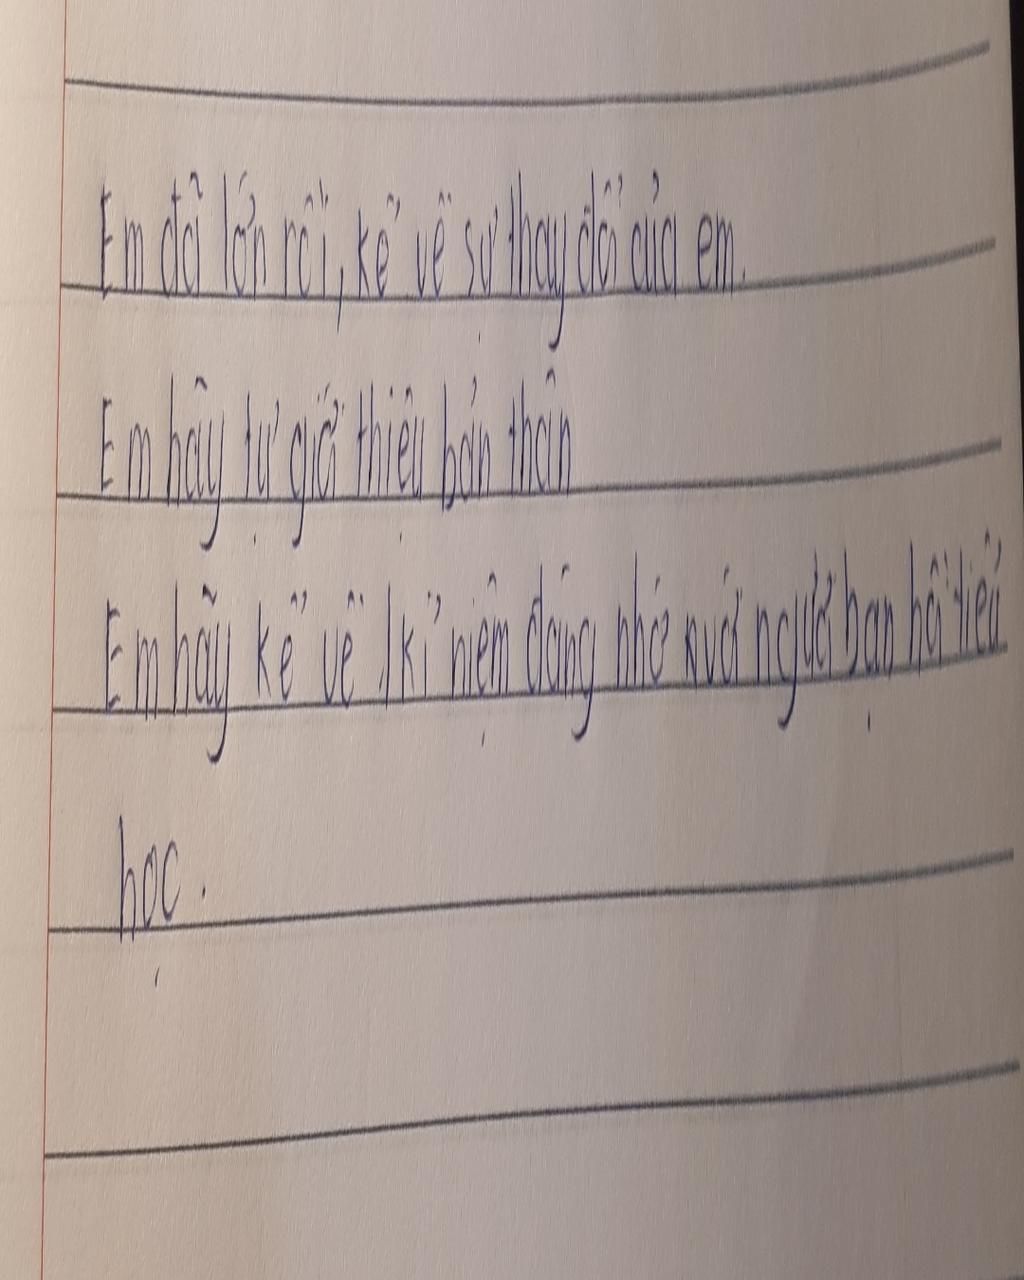 Em đã lớn rồi, kể về sự thay đổi của em.
Em hãy tự giớ thiệu bản thân
Em hãy kể về 1 kỉ niệm đáng nhớ với người bạn hồi tiểu
học.